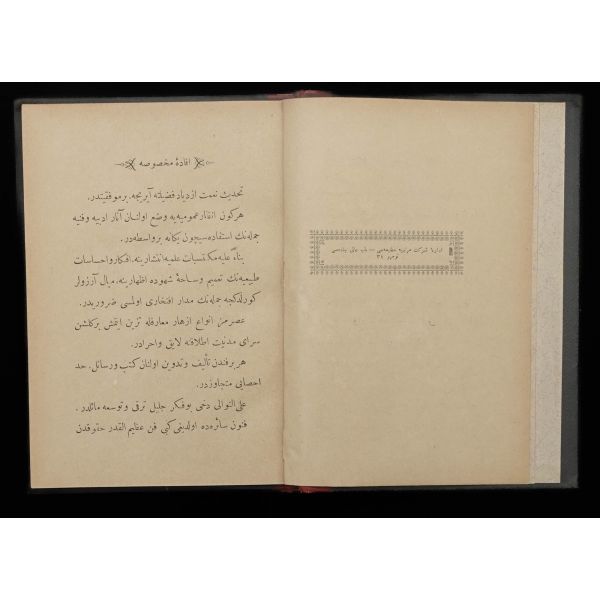 افادۀ مخصوصه
تحدیث نعمت ازدیاد فضیلته آیریجه، برموفقیتدر.
هرکون انظار عمومیه‌یه وضع اولنان آثار ادبیه وفنیه
جمله‌نك استفاده‌سیچون یکانه برواسطه‌در.
بناءً علیه مکتسبات علمیه انتشارینه، افکار واحساسات
طبیعیه‌نك تعمیم وساحۀ شهوده اظهارینه، میال آرزولر
کورلدکجه جمله‌نك مدار افتخاری اولمسی ضروریدر.
عصرمز انواع ازهار معارفله تزین ایتمش برکلشن
سرای مدنیت اطلاقنه لایق واحرادر.
هر برفندن تألیف وتدوین اولنان کتب ورسائل، حد
احصایی متجاوزدر.
علی التوالی دخی بوفکر جلیل ترقی وتوسعه مائلدر.
فنون سائره‌ده اولدیغی کبی فن عظیم القدر حقوقدن
شرکت مرتبیه مطبعه‌سی — باب عالی جاده‌سی
نومرو ٣٨